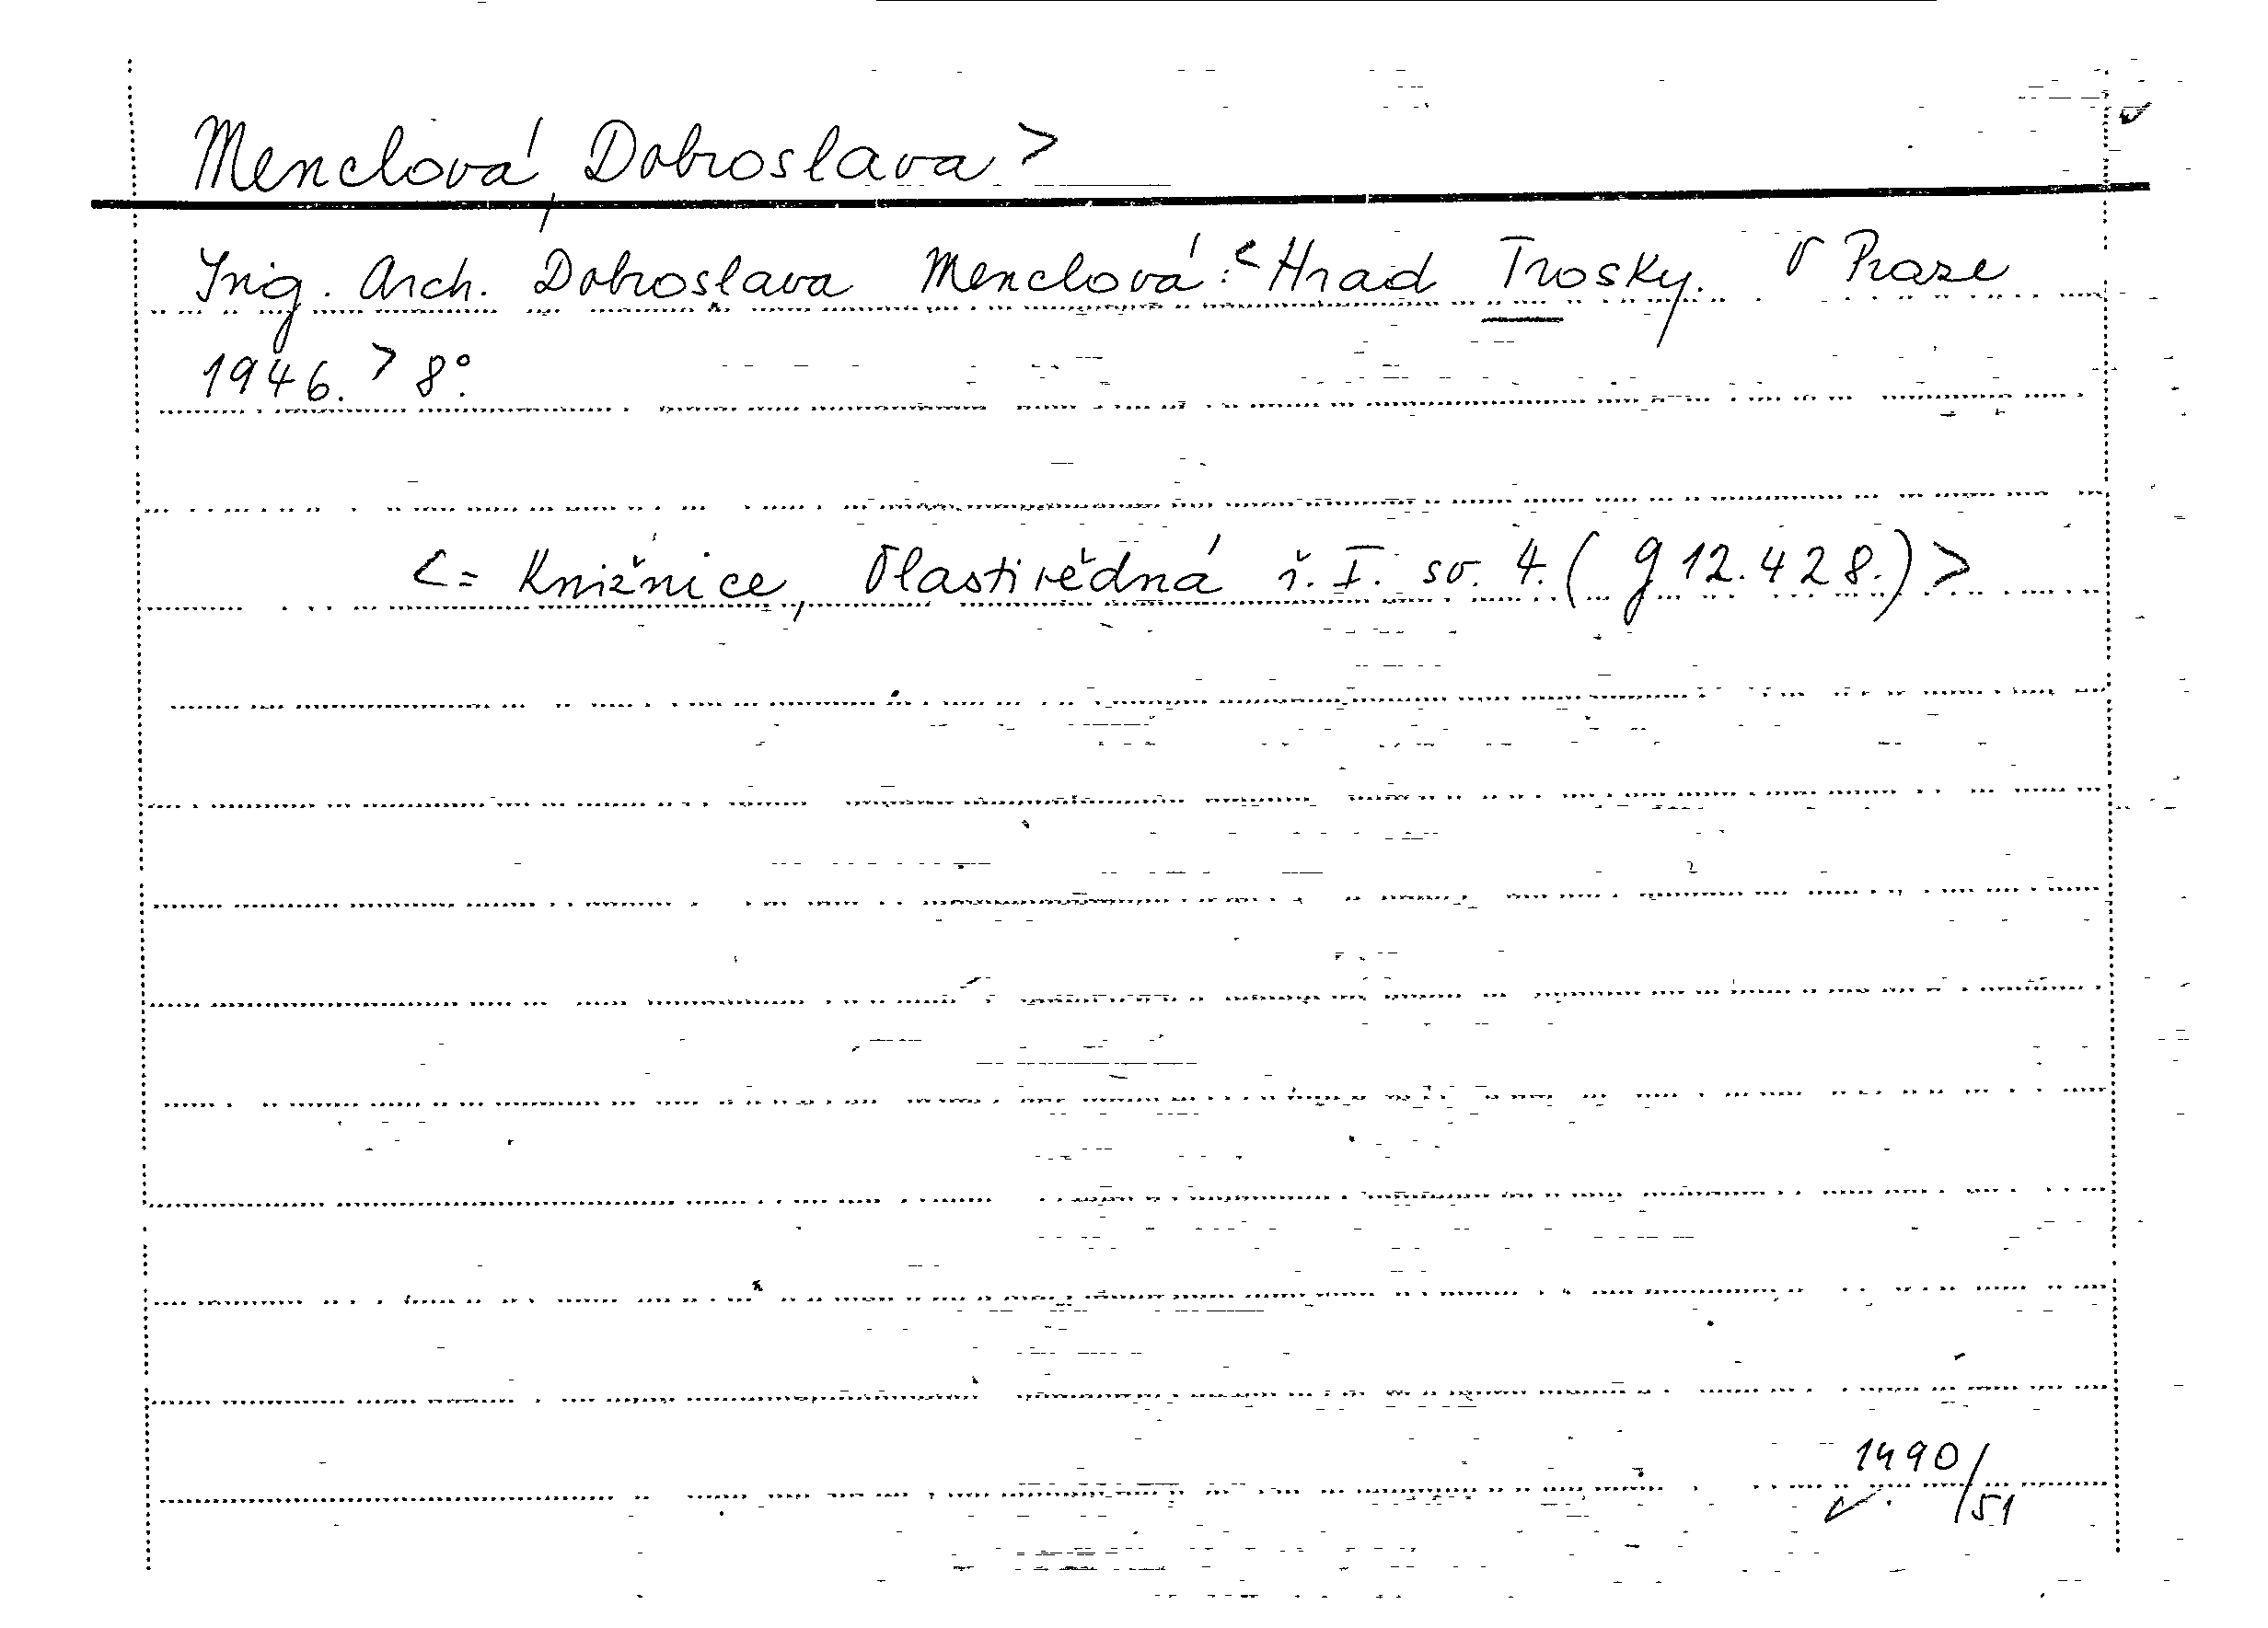 Menclová, Dobroslava >
Ing. Arch. Dobroslava Menclová: < Hrad Trosky. V Praze
1946. > 8°.
< = Knižnice, Vlastivědná ř. I. sv. 4. ( g 12.428.) >
1490/51